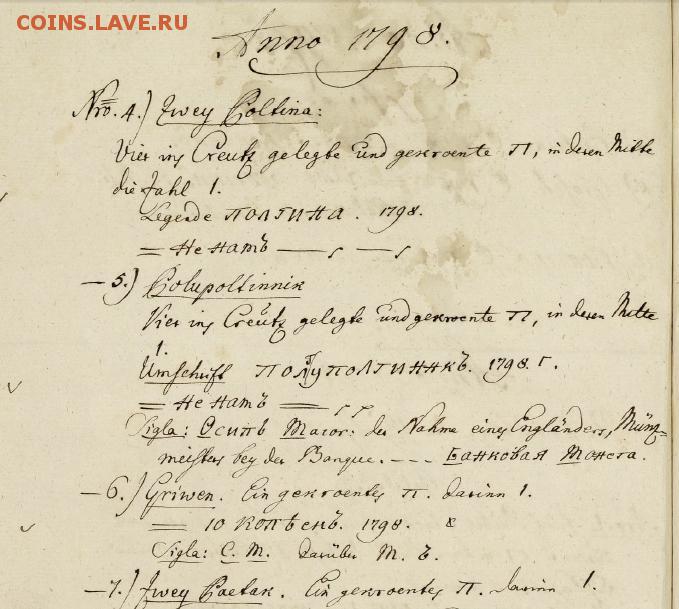 COINS.LAVE.RU
Anno 1798.
Nro. 4.) Zwey Poltina:
Vier ins Creutz gelegte und gekroente П, in deren Mitte
die Zahl 1.
Legende ПОЛТИНА. 1798.
= Не намъ
– 5.) Polupoltinnik
Vier ins Creutz gelegte und gekroente П, in deren Mitte
1.
Umschrift ПОЛУПОЛТИННКЪ. 1798. г.
= Не намъ =
Sigla: Осипъ Маіor: der Nahme eines Engländers, Münz=
meisters bey der Banque. --- Банковая Монета.
– 6.) Griwen. Ein gekroentes П. darinn 1.
= 10 КОПѢЕКЪ. 1798.
Sigla: С. М. darüber М. Б.
– 7.) Zwey Paetak. Ein gekroentes П. darinn 1.